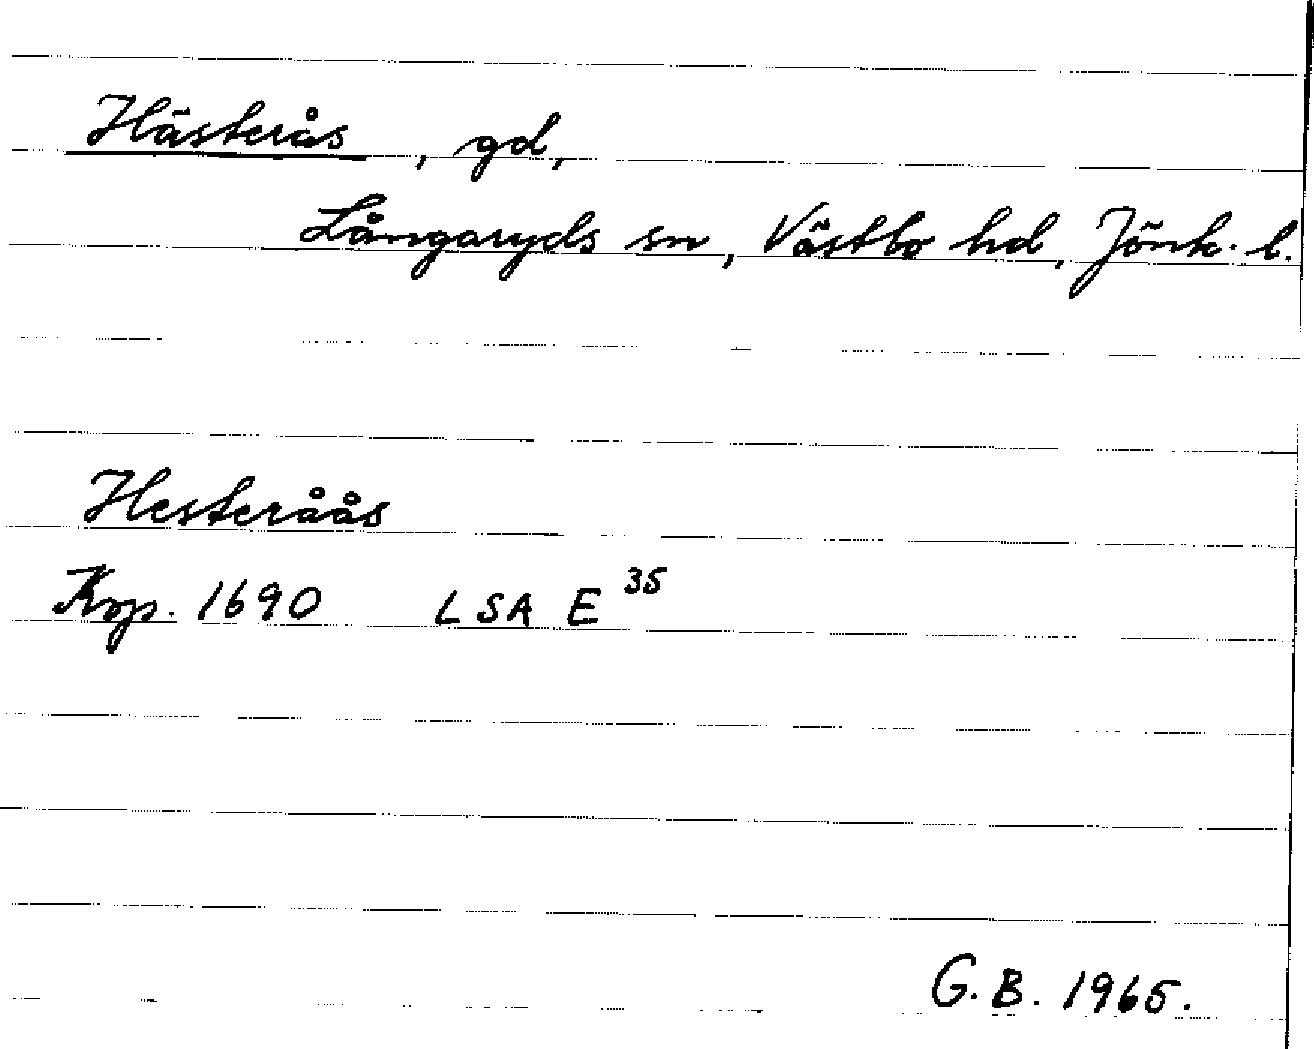 Hästerås, gd,
Långaryds sn, Västbo hd, Jönk. l.
Hesteråås
Kop. 1690 LSA E 35
G. B. 1965.